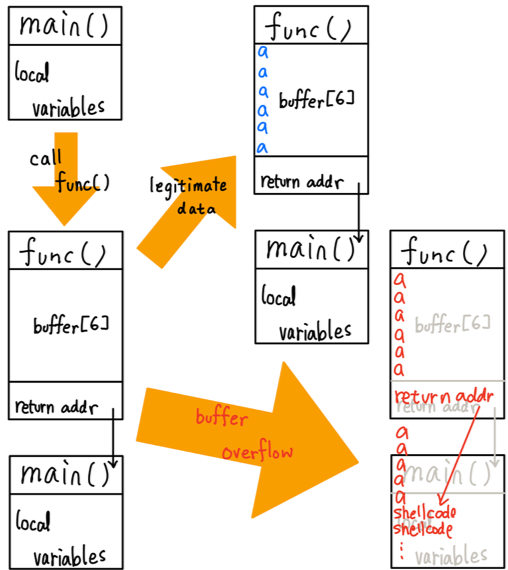 main()
local
variables
call
func()
func()
buffer[6]
return addr
main()
local
variables
legitimate
data
func()
a
a
a
a
a
a
buffer[6]
return addr
main()
local
variables
buffer
overflow
func()
a
a
a
a
a
a
buffer[6]
return addr
return addr
a
a
a
a
main()
shellcode
local
shellcode
⋮
variables